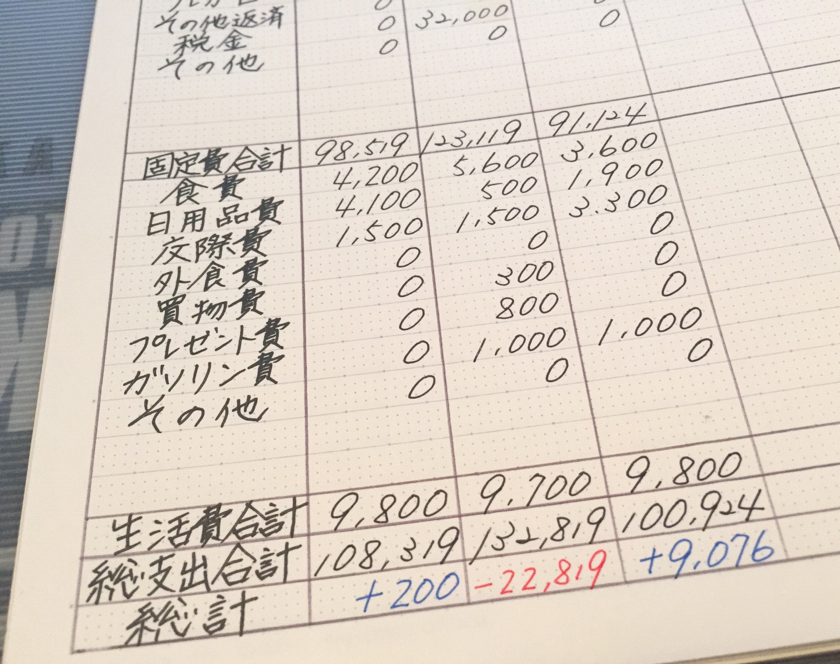 その他返済 0
税金 0 32,000
その他 0 0 0
固定費合計 98,519 123,119 91,124
食費 4,200 5,600 3,600
日用品費 4,100 500 1,900
交際費 1,500 1,500 3.300
外食費 0 0 0
買物費 0 300 0
プレゼント費 0 800 0
ガソリン費 0 1,000 1,000
その他 0 0 0
生活費合計 9,800 9,700 9,800
総支出合計 108,319 132,819 100,924
総計 +200 -22,819 +9,076